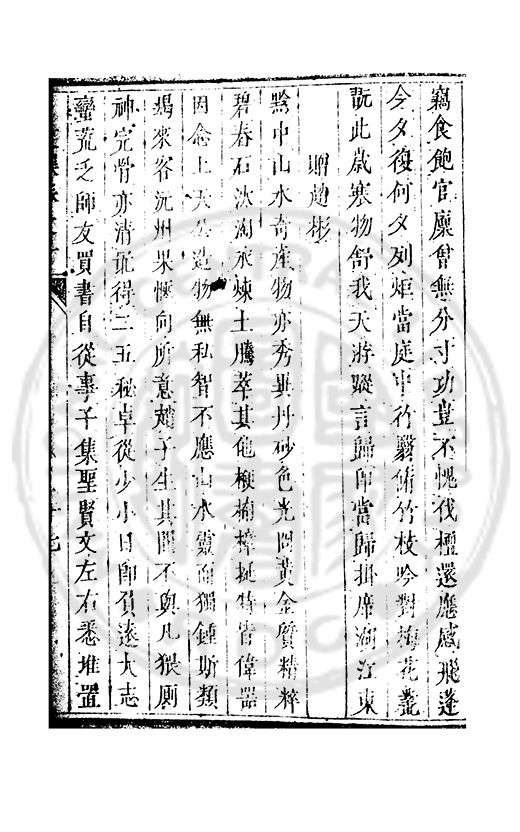 竊食飽官廩曾無分寸功豈不愧伐檀還應感飛蓬
今夕復何夕列炬當庭中竹醫脩竹枝吟對梅花叢
翫此歲寒物舒我天游蹤言歸卽當歸掛席湖江東
贈趙彬
黔中山水奇產物亦秀異丹砂色光閃黃金質精粹
碧春石汰淘永煉土騰萃其他楩楠樟挺特皆偉器
因念上天公造物無私智不應山水靈而獨鍾斯類
朅來客沅州果愜向所意趙子生其間不與凡猥廁
神完骨亦清記得二五秘卓從少小日卽負遠大志
蠻荒乏師友買書自從事子集聖賢文左右悉堆置